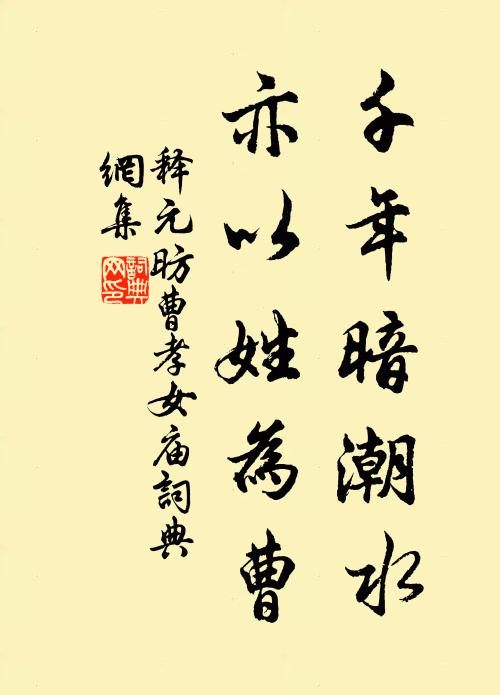 千年暗潮水
亦以姓為曹
释元昉曹孝女庙詞典
網集
詞典
网印